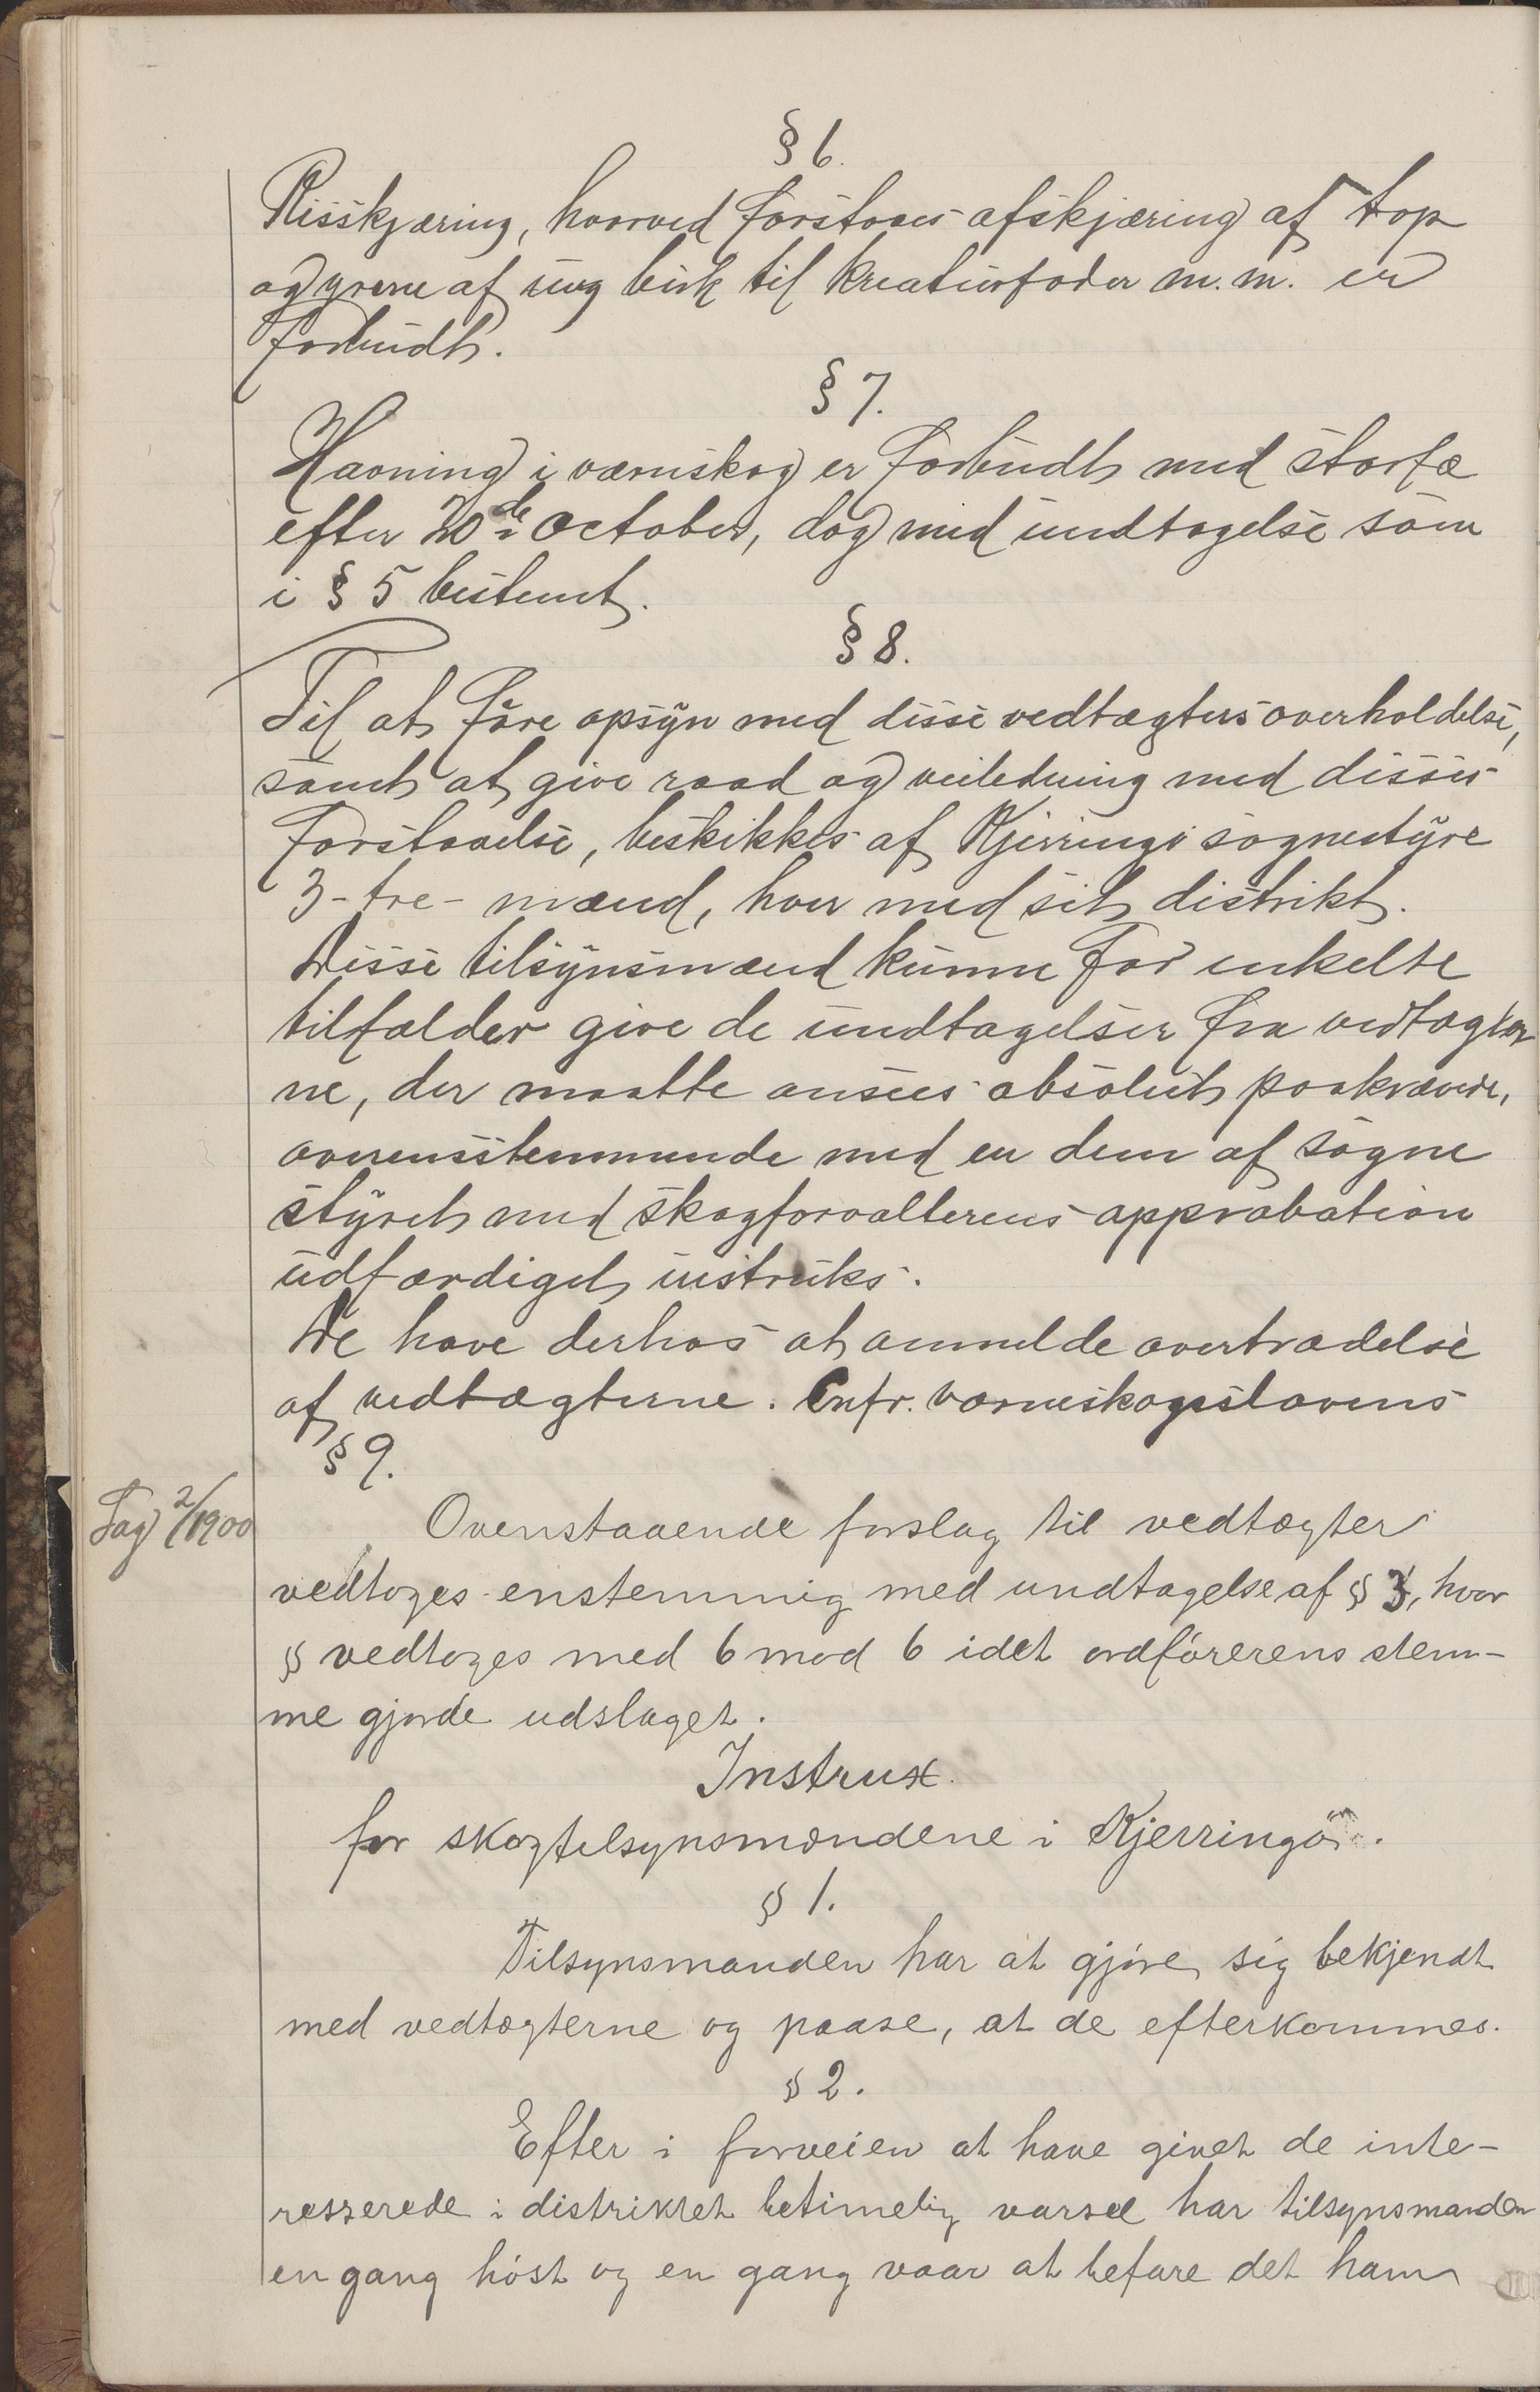 § 6.
Risskjæring, hvorved forstaaes afskjæring af top
og grene af ung birk til kreaturfoder m.m. er
forbudt.
§ 7.
Havning i værnskog er forbudt med storfæ
efter 20de October, dog med undtagelse som
i § 5 bestemt.
§ 8.
Til at føre opsyn med disse vedtægters overholdelse,
samt at give raad og veiledning med disses
forstaaelse, beskikkes af Kjerringø sognestyre
3 - tre - mænd, hver med sit distrikt.
Disse tilsynsmænd kunne for enkelte
tilfælder give de undtagelser fra vedtægter
ne, der maatte ansees absolut paakrævede,
overensstemmende med en dem af sogne
styret med skogforvalterens approbation
udfærdiget instruks.
De have derhos at anmelde overtrædelse
af vedtægterne. Cnfr. værneskogslovens
§ 9.
Sag 2/1900
Ovenstaaende forslag til vedtægter
vedtoges enstemmig med undtagelse af § 3, hvor
§ vedtoges med 6 mod 6 idet ordførerens stem-
me gjorde udslaget.
Instrux
for skogtilsynsmændene i Kjerringø.
§ 1.
Tilsynsmanden har at gjøre sig bekjendt
med vedtægterne og paase, at de efterkommes.
§ 2.
Efter i forveien at have givet de inte-
resserede i distriktet betimelig varsel har tilsynsmanden
en gang høst og en gang vaar at befare det ham